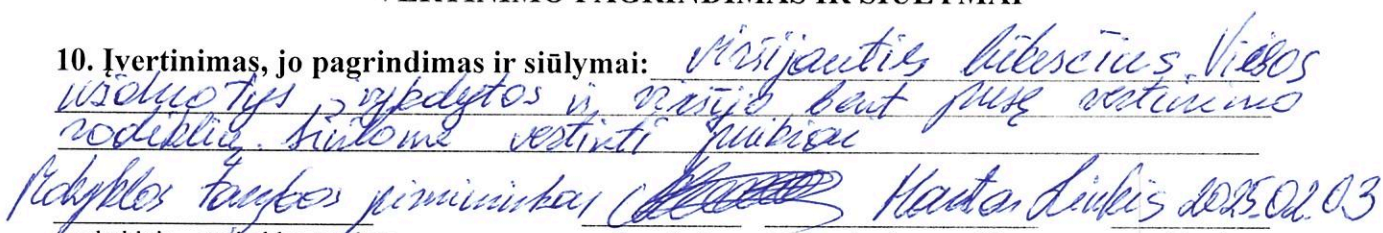 10. Įvertinimas, jo pagrindimas ir siūlymai: viršijantis lūkesčius. Visos
užduotys įvykdytos ir viršijo bent pusę vertinimo
rodiklių. Siūlome vertinti puikiai
Mokyklos tarybos pirmininkas Mantas Linkis 2025.02.03